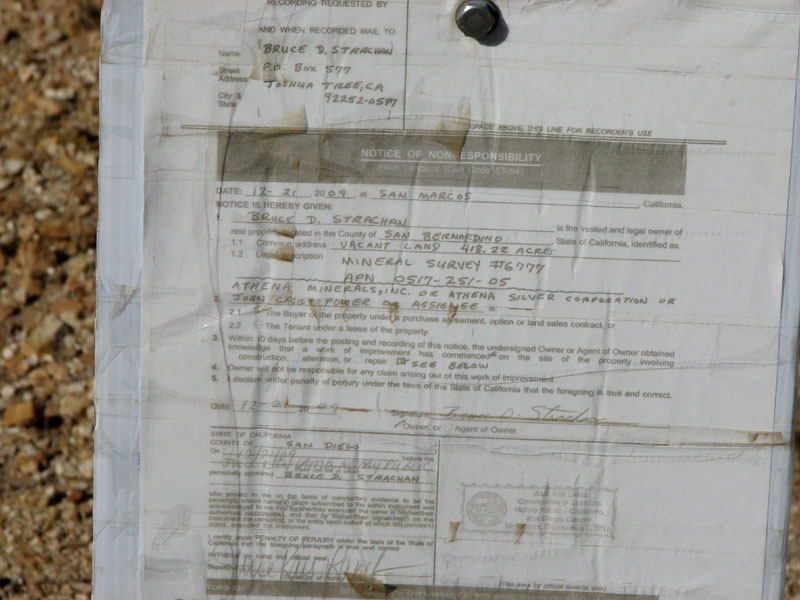 RECORDING REQUESTED BY
AND WHEN RECORDED MAIL TO
Name BRUCE D. STRACHAN
Street Address P.O. BOX 577
JOSHUA TREE, CA
City & State 92252-0577
SPACE ABOVE THIS LINE FOR RECORDER'S USE
NOTICE OF NONRESPONSIBILITY
DATE: 12-21, 2009 at SAN MARCOS, California.
NOTICE IS HEREBY GIVEN:
1. BRUCE D. STRACHAN is the vested and legal owner of
real property located in the County of SAN BERNARDINO, State of California, identified as
1.1 Common address VACANT LAND 413.22 ACRES
1.2 Legal description MINERAL SURVEY #6777
APN 0517-251-05
ATHENA MINERALS, INC. OR ATHENA SILVER CORPORATION OR
2. JOHN POWER OR ASSIGNEE is
2.1 The Buyer of the property under a purchase agreement, option or land sales contract, or
2.2 The Tenant under a lease of the property.
3. Within 10 days before the posting and recording of this notice, the undersigned Owner or Agent of Owner obtained
knowledge that a work of improvement has commenced on the site of the property involving
construction, alteration, or repair. SEE BELOW
4. Owner will not be responsible for any claim arising out of this work of improvement.
5. I declare under penalty of perjury under the laws of the State of California that the foregoing is true and correct.
Date 12-21, 2009 Signature Bruce D. Strachan
Owner, or Agent of Owner.
STATE OF CALIFORNIA
COUNTY OF SAN DIEGO
On
personally appeared BRUCE D. STRACHAN
who proved to me on the basis of satisfactory evidence to be the
I certify under PENALTY OF PERJURY under the laws of the State of
California that the foregoing paragraph is true and correct
WITNESS my hand and official seal.
Signature
Notary Public - California
San Diego County
(This area for official notarial seal)